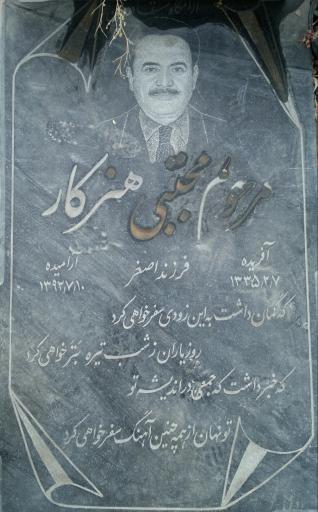 مرحوم مجتبی هنرکار
آفریده فرزند اصغر آرامیده
۱۳۳۵,۲,۷ ۱۳۹۲,۷,۱۰
که گمان داشت به این زودی سفر خواهی کرد
روز یاران ز شب تیره بتر خواهی کرد
که خبر داشت که جمعی در اندیشه تو
تو نهان از همه چنین آهنگ سفر خواهی کرد